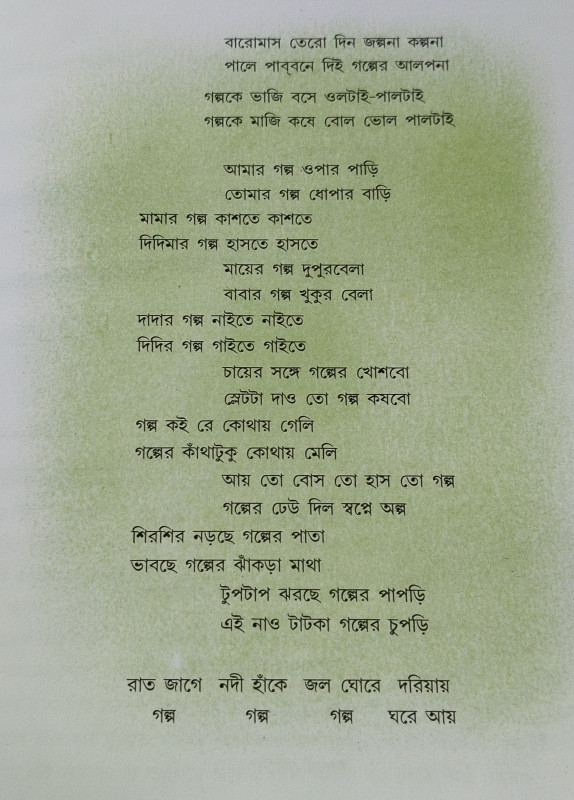 বারোমাস তেরো দিন জল্পনা কল্পনা
পালে পাব্‌বনে দিই গল্পের আলপনা
গল্পকে ভাজি বসে ওলটাই-পালটাই
গল্পকে মাজি কষে বোল ভোল পালটাই
আমার গল্প ওপার পাড়ি
তোমার গল্প ধোপার বাড়ি
মামার গল্প কাশতে কাশতে
দিদিমার গল্প হাসতে হাসতে
মায়ের গল্প দুপুরবেলা
বাবার গল্প খুকুর বেলা
দাদার গল্প নাইতে নাইতে
দিদির গল্প গাইতে গাইতে
চায়ের সঙ্গে গল্পের খোশবো
স্লেটটা দাও তো গল্প কষবো
গল্প কই রে কোথায় গেলি
গল্পের কাঁথাটুকু কোথায় মেলি
আয় তো বোস তো হাস তো গল্প
গল্পের ঢেউ দিল স্বপ্নে অল্প
শিরশির নড়ছে গল্পের পাতা
ভাবছে গল্পের ঝাঁকড়া মাথা
টুপটাপ ঝরছে গল্পের পাপড়ি
এই নাও টাটকা গল্পের চুপড়ি
রাত জাগে নদী হাঁকে জল ঘোরে দরিয়ায়
গল্প গল্প গল্প ঘরে আয়